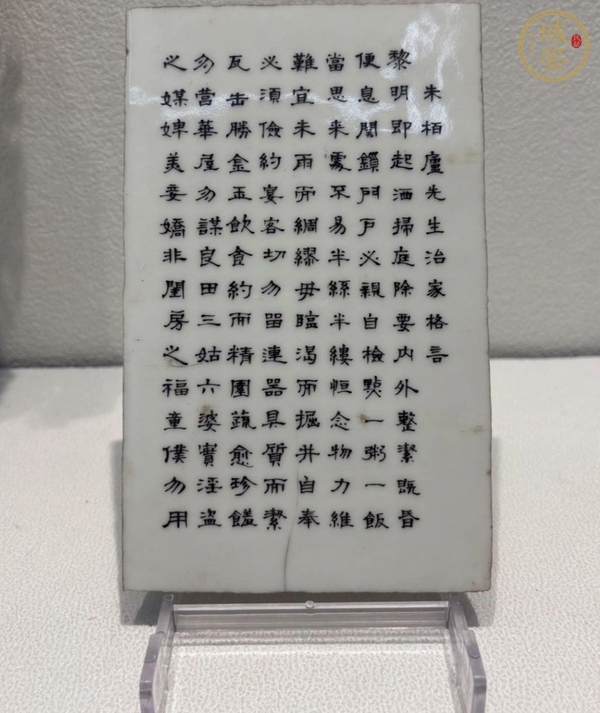 朱栢廬先生治家格言
黎明即起洒掃庭除要内外整潔既昏
便息関鎖門戶必親自檢點一粥一飯
當思来處不易半絲半縷恒念物力維
難宜未雨而綢繆毋臨渴而掘井自奉
必須儉約宴客切勿留連器具質而潔
瓦缶勝金玉飲食約而精園蔬愈珍饈
勿營華屋勿謀良田三姑六婆實淫盗
之媒婢美妾嬌非閨房之福童僕勿用